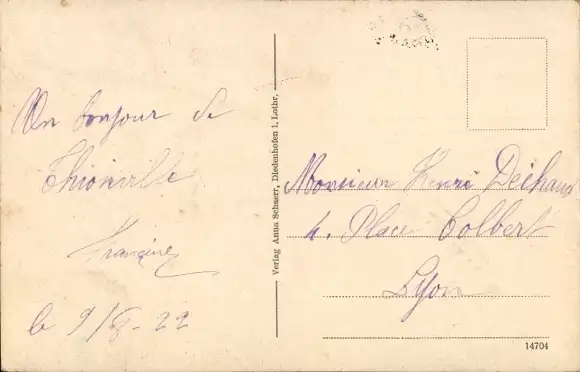 Un bonjour de
Thionville
Francine
le 9/8-22
Verlag Anna Schnerr, Diedenhofen i. Lothr.
Monsieur Henri Dechaux
4. Place Colbert
Lyon
14704